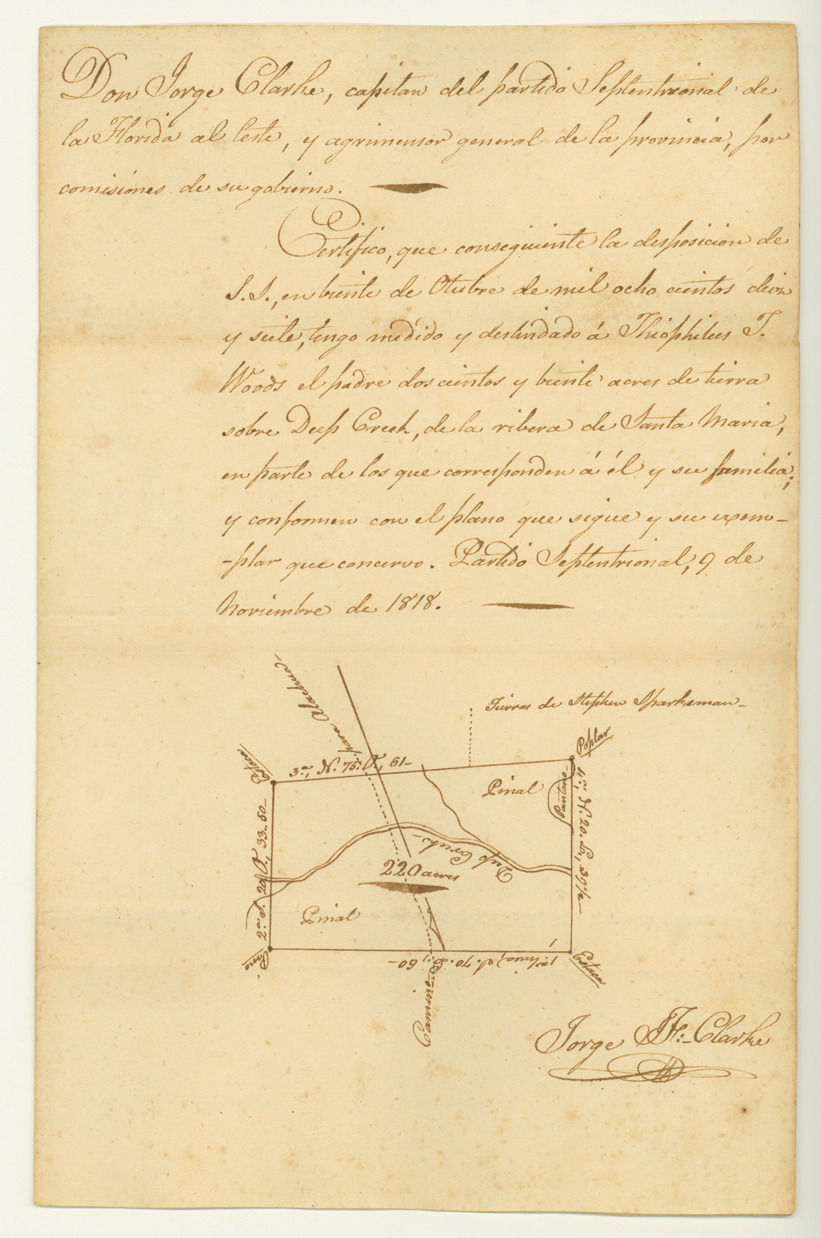 Don Jorge Clarke, capitan del partido Septentrional de
la Florida al leste, y agrimensor general de la provincia, por
comisiones de su gobierno.
Certifico, que conseguiente la desposicion de
S.S., en biente de Otubre de mil ocho cientos diez
y siete, tengo medido y deslindado á Theophilus T.
Woods el padre dos cientos y biente acres de tierra
sobre Deep Creek, de la ribera de Santa Maria,
en parte de los que corresponden á él y su familia;
y conformen con el plano que sigue y su exem-
-plar que concervo. Partido Septentrional, 9 de
Noviembre de 1818.
Tierras de Stephen Sparkman
para Alachua
Estaca
3.a, N. 75. O., 61-
Poplar
Pinal
Pantano
4.a, N. 20. E., 39½-
2.a S. 20 O., 33.50-
Deep Creek-
220 acres
Pinal
Pino
S. 70. E., 60-
Estaca
Camino
Jorge J. F. Clarke